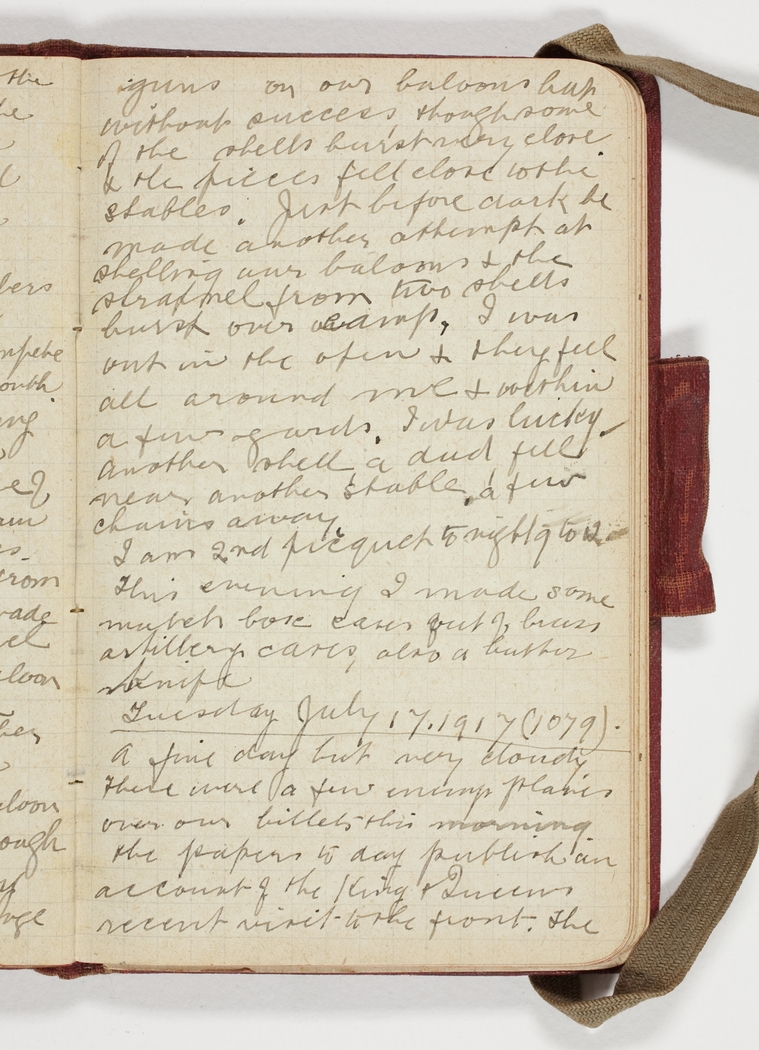 the
the
guns on our baloons but
without success, though some
of the shells burst very close
& the pieces fell close to the
stables. Just before dark he
made another attempt at
shelling our baloons & the
shrapnel from two shells
burst over camp, I was
out in the open & they fell
all around me & within
a few yards. I was lucky
another shell a dud fell
near another stable, a few
chains away.
I am 2nd picquet to night 9 to 12.
This evening I made some
match box cases out of brass
artillery cases, also a butter
knife
Tuesday July 17.1917 (1079).
A fine day but very cloudy
there were a few enemy planes
over our billets this morning
the papers to day publish an
account of the King & Queens
recent visit to the front. The